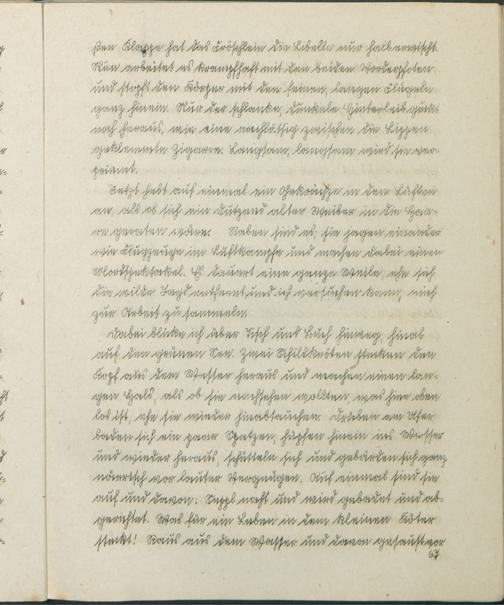 ßen Klappe hat das Fröschlein die Libelle nur halb erwischt.
Nun arbeitet es krampfhaft mit den beiden Vorderpfoten
und stopft den Körper mit den feinen, langen Flügeln
ganz hinein. Nur der schlanke, dunkele Hinterleib guckt
noch heraus, wie eine nachlässig zwischen die Lippen
geklemmte Zigarre. Langsam, langsam wird sie ver-
speist.
Jetzt hebt auf einmal ein Gekrächze in den Lüften
an, als ob sich ein Dutzend alter Weiber in die Haa-
re geraten wäre. Raben sind es; sie jagen einander
wie Flugzeuge im Luftkampfe und machen dabei einen
Mordsspektakel. Es dauert eine ganze Weile, ehe sich
die wilde Jagd entfernt und ich versuchen kann, mich
zur Arbeit zu sammeln.
Dabei blicke ich über Tisch und Buch hinweg, hinab
auf den grünen See. Zwei Schildkröten stecken den
Kopf aus dem Wasser heraus und machen einen lan-
gen Hals, als ob sie nachsehen wollten, was hier oben
los ist, ehe sie wieder hinabtauchen. Drüben am Ufer
baden sich ein paar Spatzen, hüpfen hinein ins Wasser
und wieder heraus, schütteln sich und gebärden sich ganz
närrisch vor lauter Vergnügen. Auf einmal sind sie
auf und davon: Seppl naht und wird gebadet und ab-
gerichtet. Was für ein Leben in dem kleinen Köter
steckt! Raus aus dem Wasser und davon gesaust vor
67